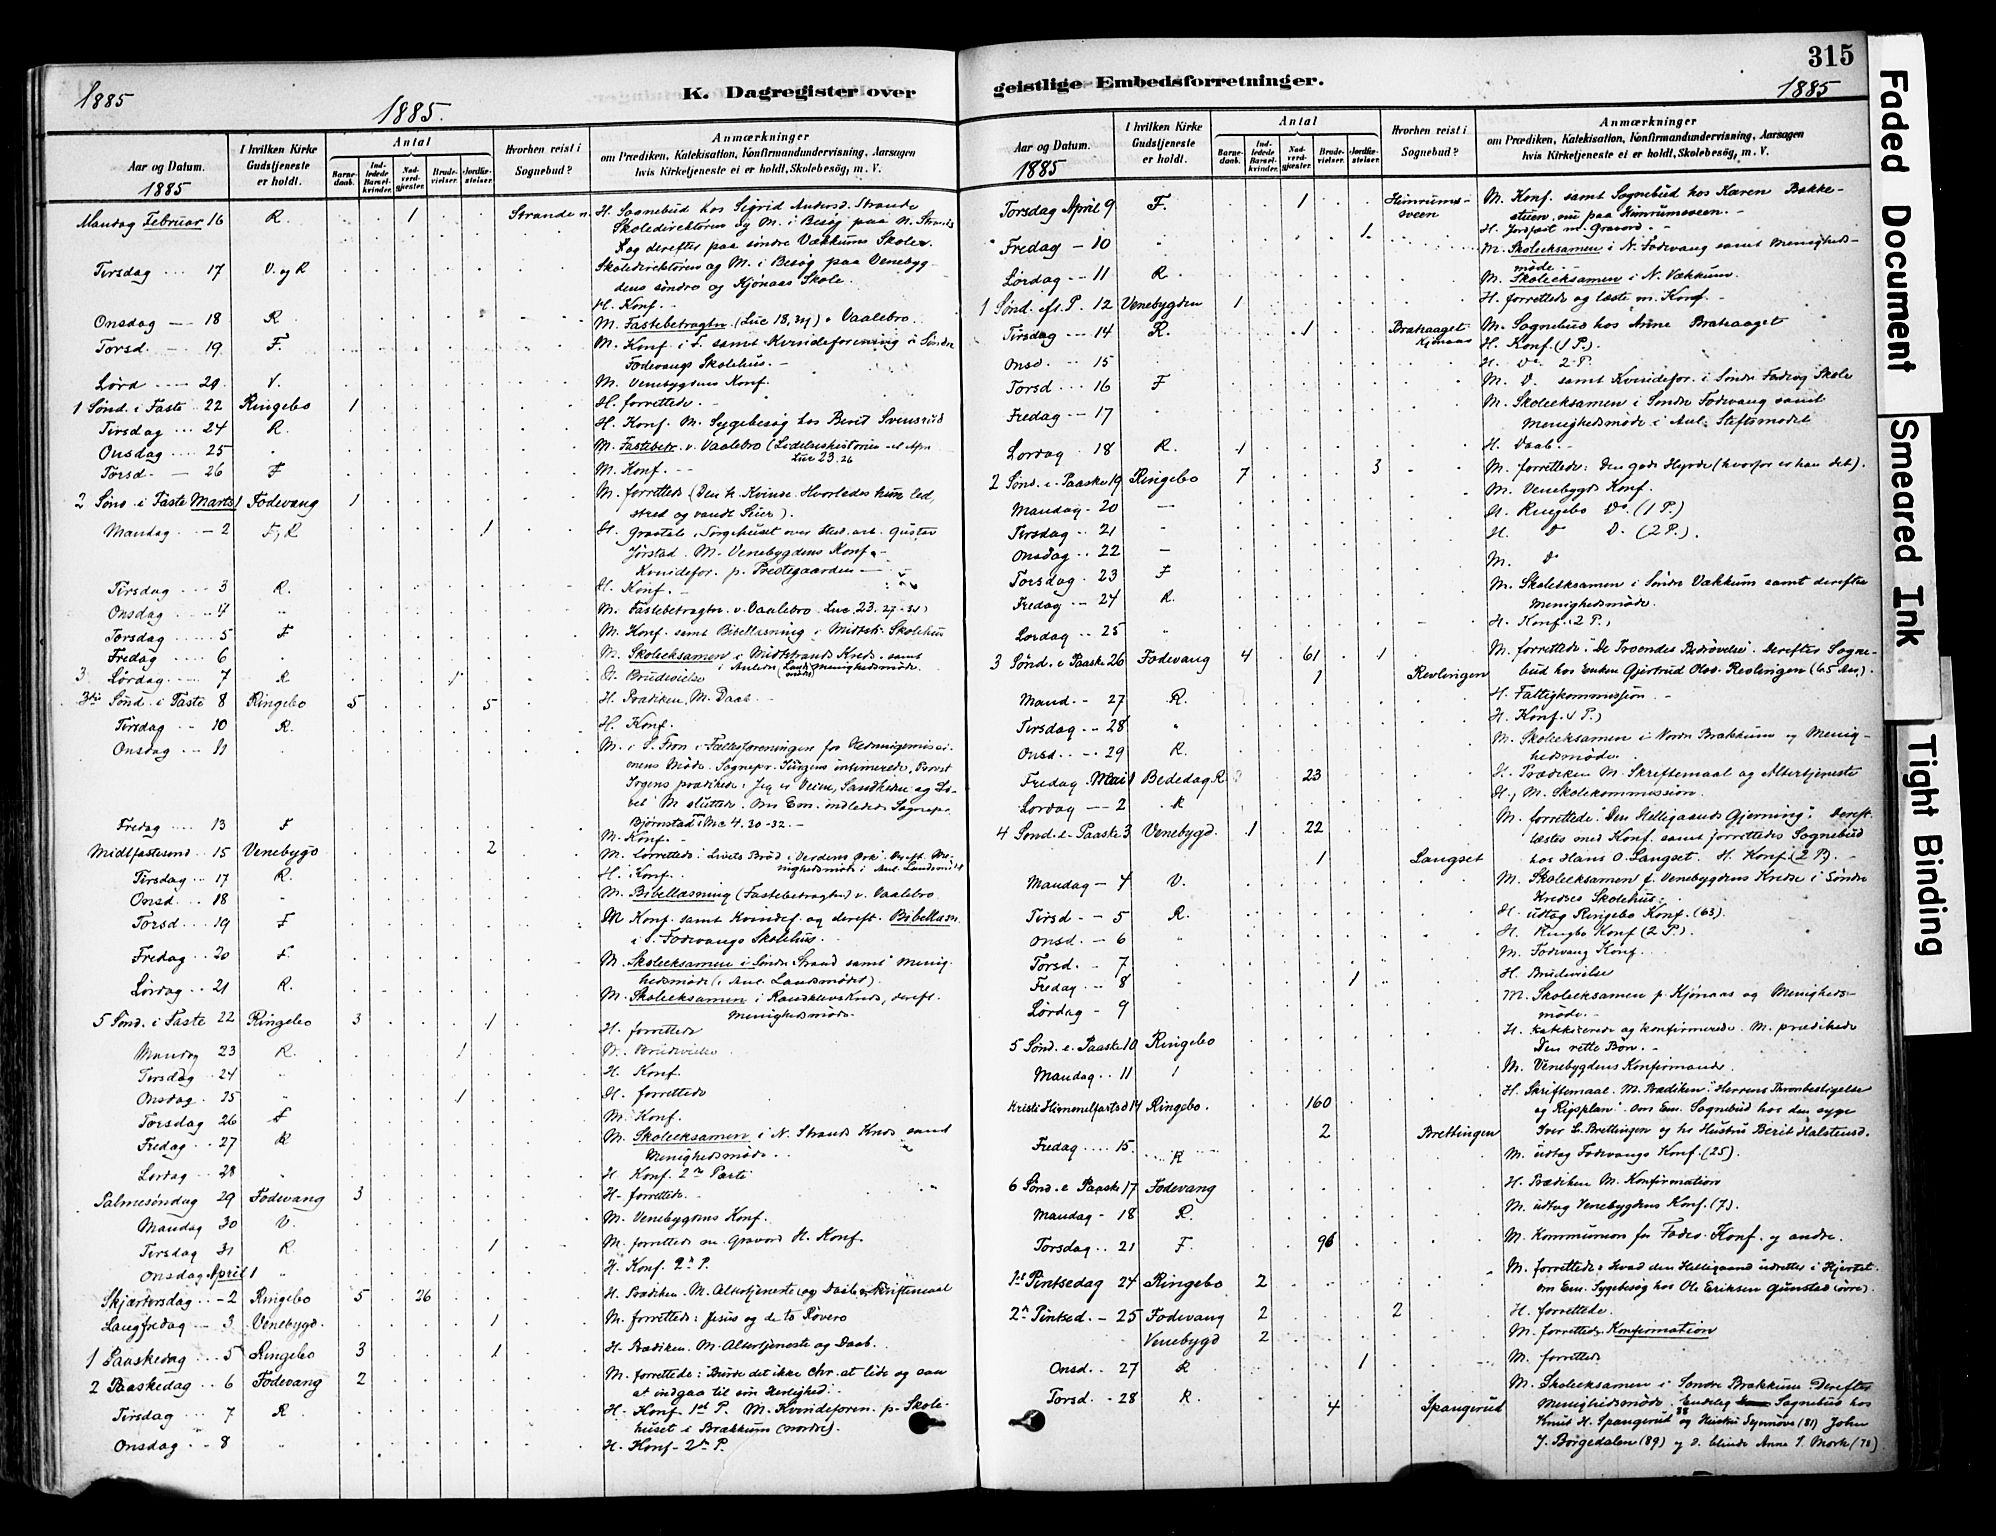 315
1885
1885.
K. Dagregister over
geistlige Embedsforretninger.
1885
Aar og Datum.
1885
I hvilken Kirke Gudstjeneste er holdt.
Antal
Barnedaab.
Indledede Barselkvinder.
Nadverdgjester.
Brudevielser.
Jordfæstelser.
Hvorhen reist i Sognebud?
Anmærkninger
om Prædiken, Katekisation, Konfirmandundervisning, Aarsagen
hvis Kirketjeneste ei er holdt, Skolebesøg, m. V.
Mandag Februar 16 R. 1 Stranden H. Sognebud hos Sigrid Andersd. Strande
Skoledirektøren og M. i Besøg paa N. Strands
og derefter paa søndre Vækkums Skoler.
Tirsdag 17 V. og R Skoledirektøren og M. i Besøg paa Venebyg-
dens søndre og Kjønaas Skole.
H. Konf.
Onsdag 18 R M. Fastebetragtn (Luc 18,31) v. Vaalebro.
Torsd. 19. F. M. Konf. i F. samt Kvindeforening i Søndre
Fodevangs Skolehus.
Lørd 20. V. M. Venebygdens Konf.
1 Sønd. i Faste 22 Ringebo 1 H. forrettede.
Tirsdag 24 R. H. Konf. M. Sygebesøg hos Berit Svensrud
Onsdag 25 M. Fastebetr. v. Vaalebro (Lidelseshistorien
Luc 23.26
Torsd. 26 F M. Konf.
2 Sønd. i Faste Marts 1 Fodevang 1 M. forrettede (Den k. Kvinde. Hvorledes hun led,
stred og vandt Seier).
Mandag 2 F, R 1 H. Gravtale i Sørgehuset over Gustav
Jørstad. M. Venebygdens Konf.
Kvindefor. p. Prestegaarden
Tirsdag 3 R. H. Konf.
Onsdag 4 " M. Fastebetragtn. v. Vaalebro Luc 23. 27-31)
Torsdag 5 F M. Konf. samt Bibellæsning i Midtst. Skolehus
Fredag 6 M. Skoleeksamen i Midtstrands Kreds samt
Menighedsmøde
Lørdag 7 R 1 Brudevielse
3die Sønd. i Faste 8 Ringebo 5 5 H. Prædiken, M. Daab.
Tirsdag 10 R. H. Konf.
Onsdag 11 M. i S. Fron i Fællesforeningen for Hedningemissi-
onens Møde. Sognepr. intimerede, Provst
prædikede: Jeg er Veien, Sandheden og Li-
vet M sluttede. Om Em. indledede Sognepr.
Bjørnstad Mc 4. 30-32.
Fredag 13 F M. Konf.
Midtfastesønd. 15 Venebygd 2 M. forrettede: Livets Brød i Verdens Ørk. Dereft. Me-
nighedsmøde
Tirsdag 17 R. H. Konf.
Onsd. 18 M. Bibellæsning (Fastebetragtn) v. Vaalebro
Torsd. 19 F M Konf. samt Kvindef. og dereft. Bibellæsn.
i S. Fodevangs Skolehus.
Fredag 20 F. M. Skoleeksamen i Søndre Strand samt Menig-
hedsmøde (i Anl. Landsmødet).
Lørdag 21 R. M. Skoleeksamen i Randklevs Kreds, dereft.
Menighedsmøde.
5 Sønd. i Faste 22 Ringebo 3 1 H. forrettede
Mandag 23 R. 1 Brudevielse
Tirsdag 24 " H. Konf.
Onsdag 25 1 H. forrettede
Torsdag 26 F M. Konf.
Fredag 27 R M. Skoleeksamen i N. Strands Kreds samt
Menighedsmøde.
Lørdag 28 H Konf. 2den Parti
Palmesøndag 29 Fodevang 3 H. forrettede.
Mandag 30 V. M. Venebygdens Konf.
Tirsdag 31 R 1 M. forrettede m. Gravord H. Konf.
Onsdag April 1 " H. Konf. 2d P.
Skjærtorsdag 2 Ringebo 5 26 H. Prædiken. M. Altertjeneste og Daab. Skriftemaal
Langfredag 3 Venebygd. 1 M. forrettede: Jesus og de to Røvere
1 Paaskedag 5 Ringebo 3 1 H. Prædiken. M. Altertjeneste og Daab.
2 Paaskedag 6 Fodevang 2 M. forrettede: Burde det ikke Chr. at lide og saa
at indgaa til sin Herlighed.
Tirsdag 7 R H. Konf. 1st P. M. Kvindeforen. p. Skole-
huset i Brækkum (nordre).
Onsdag 8 " H. Konf. 2den P.
Aar og Datum.
1885
I hvilken Kirke Gudstjeneste er holdt.
Antal
Barnedaab.
Indledede Barselkvinder.
Nadverdgjester.
Brudevielser.
Jordfæstelser.
Hvorhen reist i Sognebud?
Anmærkninger
om Prædiken, Katekisation, Konfirmandundervisning, Aarsagen
hvis Kirketjeneste ei er holdt, Skolebesøg, m. V.
Torsdag April 9 F. 1 Kimrums-
sveen M. Konf. samt Sognebud hos Karen Bakke-
stuen, nu paa Kimrumsveen.
Fredag 10 1. H. Jordfæst m. Gravord.
M. Skoleeksamen i N. Fodevang samt Menigheds-
møde.
Lørdag 11 R. M. Skoleeksamen i N. Vækkum.
1 Sønd. eft. P. 12 Venebygden 1 H. forrettede og læste m. Konf.
Tirsdag 14 R. 1 Brataaget
Kjønaas M. Sognebud hos Anne Brataaget
H. Konf. (1 P.)
Onsd. 15 H. Do 2 P.
Torsd 16 F M. D. samt Kvindefor. i Søndre Fodevg Skole
Fredag 17 M. Skoleeksamen i Søndre Fodevang samt
Menighedsmøde i Anl. Stiftsmødet
Lørdag 18 R. 1 H. Daab.
2 Sønd. e. Paaske 19 Ringebo 7 3 M. forrettede: Den gode Hyrde (hvorfor er han det).
Mandag 20 — M. Venebygds Konf.
Tirsdag 21 H. Ringebo Do. (1 P.)
Onsdag 22 — H. Do D. (2 P.).
Torsdag 23 F M. Do
Fredag 24 R. M. Skoleeksamen i Søndre Vækkum samt derefter
Menighedsmøde.
Lørdag 25 " H. Konf. (2 P.)
3 Sønd. e. Paaske 26 Fodevang 4 61 1 M. forrettede: De Troendes Bedrøvelse. Derefter Sogne-
1 Revlingen bud hos Enken Gjertrud Olsd. Revlingen (65 Aar.)
Mand. 27 R. H. Fattigkommission
Tirsdag 28 " H. Konf. (1 P.)
Onsd. 29 R. M. Skoleeksamen i Nordre Brækkum og Menig-
hedsmøde.
Fredag Mai 1 Bededag R 23 H. Prædiken M. Skriftemaal og Altertjeneste
Lørdag 2 R H., M. Skolekommission.
4 Sønd. e. Paaske 3 Venebygd. 1 22 M. forrettede: Den Helligaands Gjerning. Dereft.
læstes med Konf. samt forrettedes Sognebud
1 Langset hos Hans O. Langset. H. Konf. (2 P).
Mandag 4 V. M. Skoleeksamen f. Venebygdens Kreds i Søndre
Kredses Skolehus.
Tirsd 5 R. H. udtog Ringebo Konf. (63).
Onsd. 6 " H. Ringbo Konf (2 P.).
Torsd. 7 M. Fodevang Konf.
Fredag 8 1 H. Brudevielse
Lørdag 9 M. Skoleeksamen p. Kjønaas og Menigheds-
møde.
5 Sønd. e. Paaske 10 Ringebo H. katekiserede og konfirmerede. M. prædikede
Den rette Bøn.
Mandag 11 M. Venebygdens Konfirmander
Kristi Himmelfartsd 14 Ringebo. 160 H. Skriftemaal. M. Prædiken: Herrens Thronbestigelse
og Rigsplan. Om Em. Sognebud hos den syge
2 Brettingen Iver L. Brettingen og hs Hustru Berit Halstensd.
Fredag 15. R M. udtog Fodevangs Konf. (25).
6 Sønd. e Paaske 17 Fodevang H. Prædiken M. Konfirmation
Mandag 18 R. M. udtog Venebygdens Konf. (7).
Torsdag 21 F. 96 M. Kommunion for Fodev. Konf. og andre.
1ste Pintsedag 24 Ringebo 2 M. forrettede: Hvad den Helligaand udretter i Hjertet.
om Em. Sygebesøg hos Ole Eriksen Gunstad (øvre).
2n Pintsed. 25 Fodevang 2 2 H. forrettede.
Venebygd 2 M. forrettede Konfirmation
Onsd. 27 R 1 M. forrettede
Torsd. 28 R. M. Skoleeksamen i Søndre Brækkum. Derefter
4 Spangerud Menighedsmøde. Endelig Sognebud hos
Knut H. Spangerud 88 og Hustru Synnøve (81) John
J. Borgedalen (89) og d. blinde Anne I. Mork (70)
Faded Document
Smeared Ink
Tight Binding